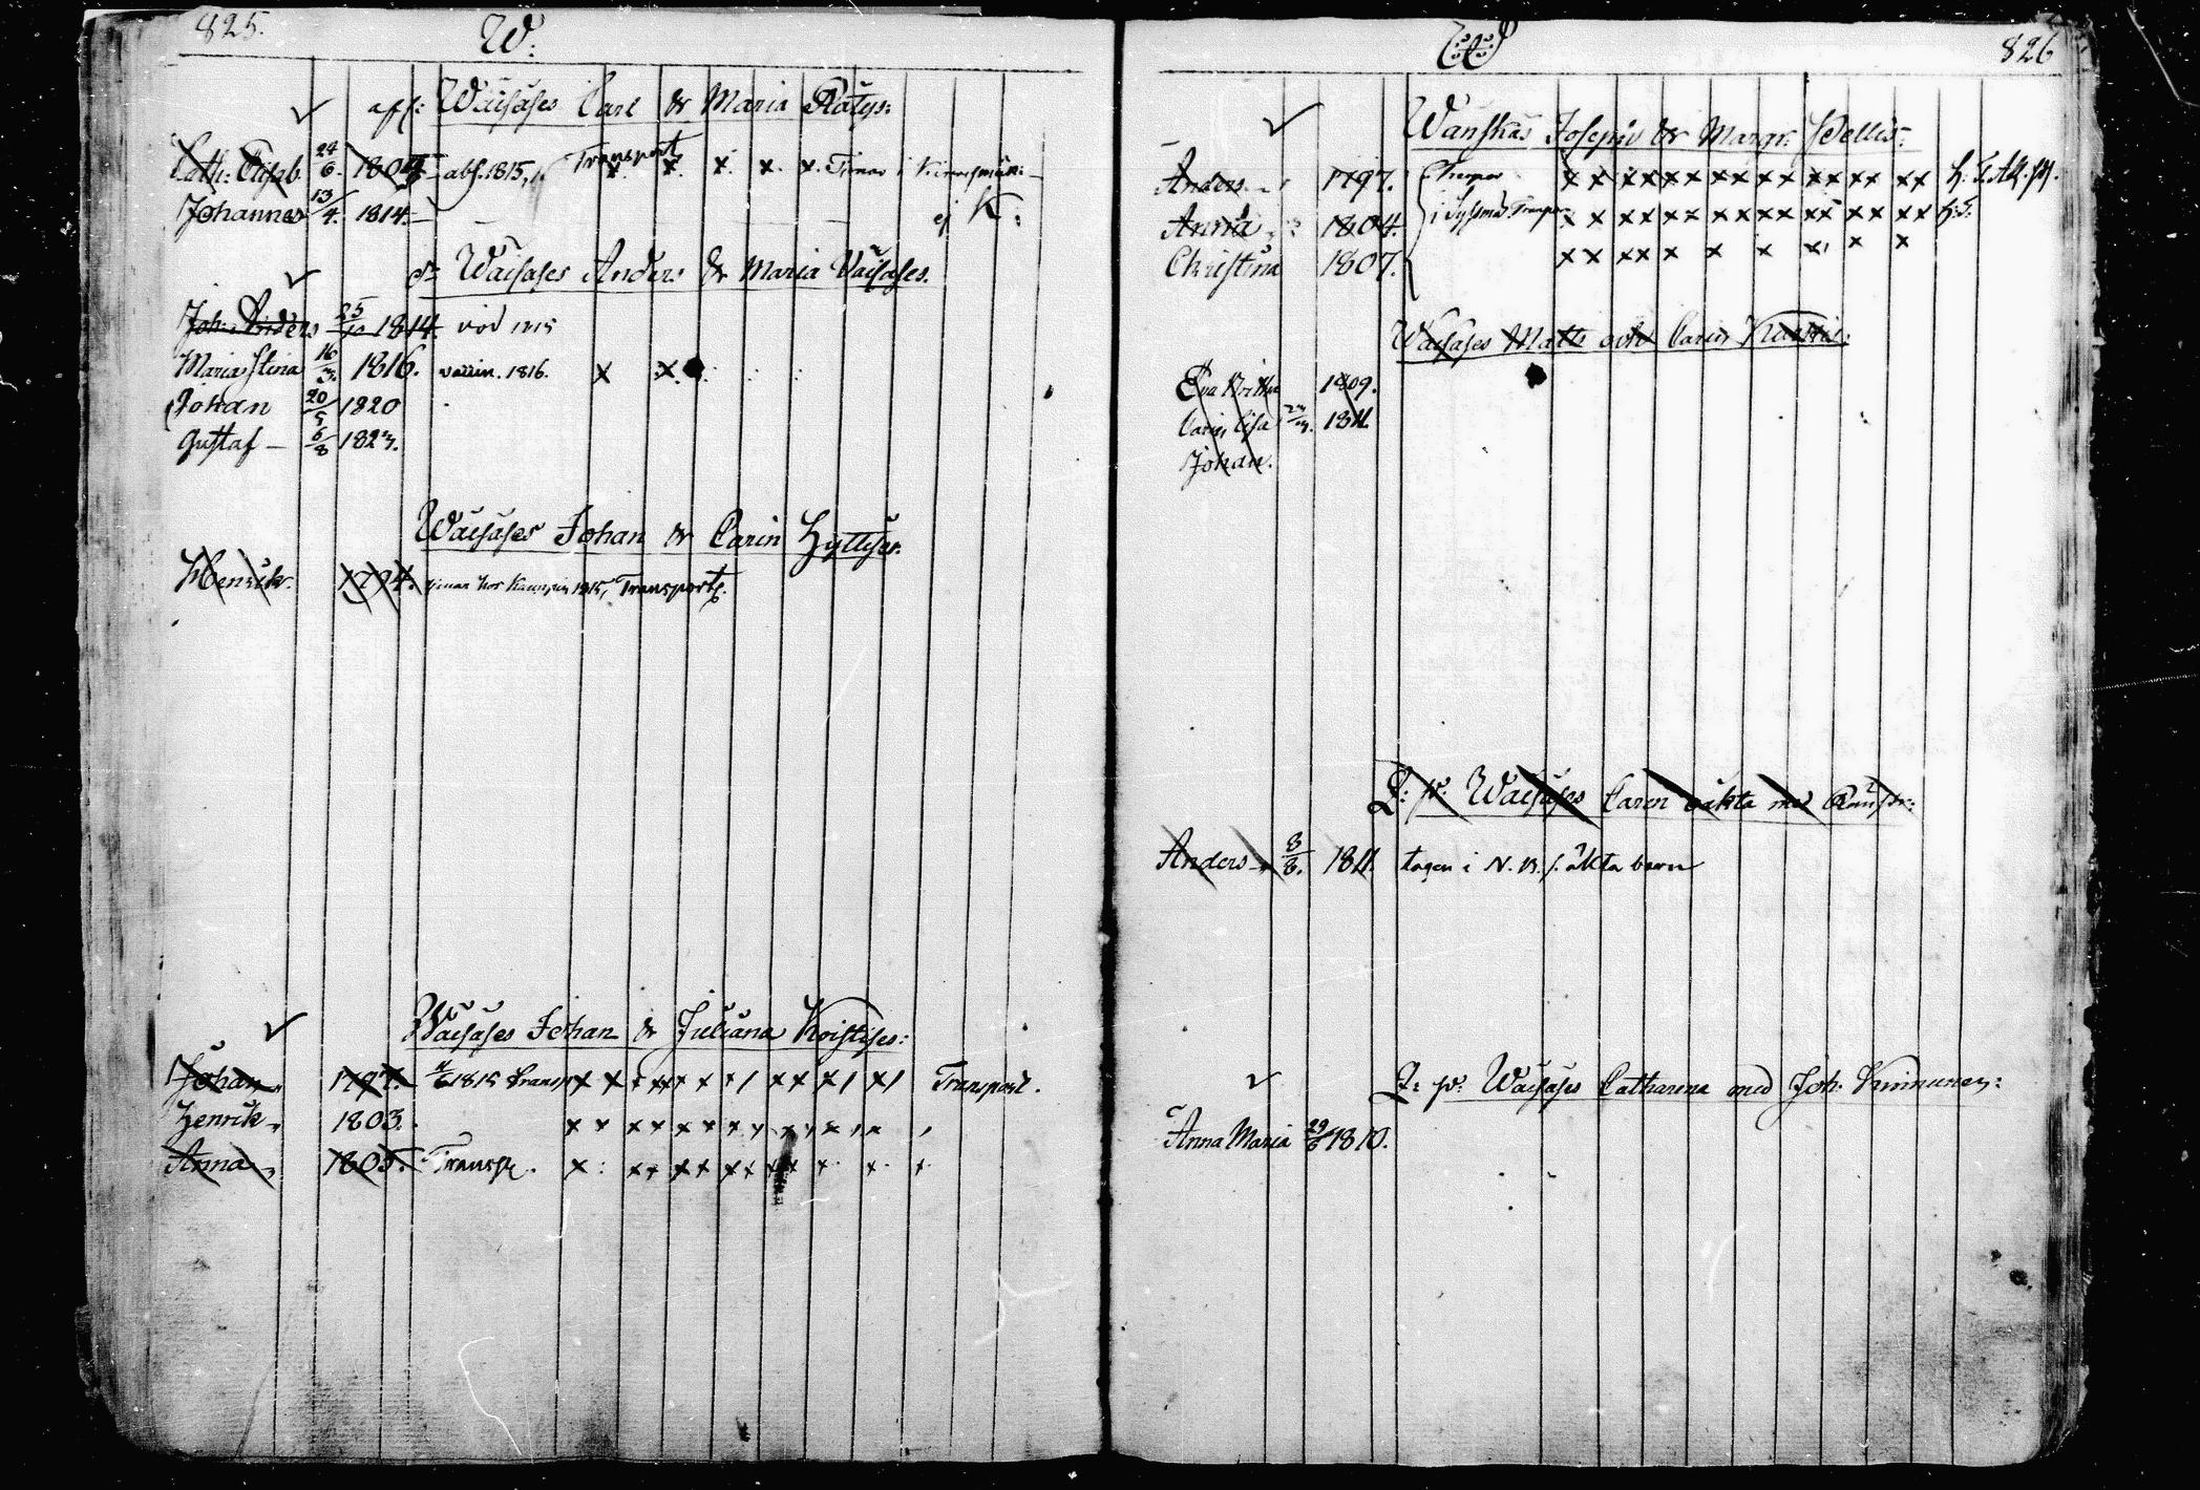 825.
W:
aff: Waisases Carl & Maria Rätys:
Cath: Elisab. 24/6. 1804 abs. 1815, Transport x. x. x. x. Tienar i
Johannes 13/4. 1814. ej K:
Waisases Anders & Maria Vaisases.
Joh: Anders 25/10 1814. död 1815
Maria Stina 16/3. 1816. vaccin. 1816. x x
Johan 20/5 1820
Gustaf - 6/8 1823.
Waisases Johan & Carin Hyttises.
Henrik. 1794. tienar hos 1815, Transport.
Waisases Johan & Juliana Koistises:
Johan 1797. 1815 Transp x x x x x x x x / x x x / x / Transport.
Henrik 1803. x x x x x x x x x x x x
Anna 1805. Transp. x: x x x x x x x x x. x. x.
W
826
Wanskas Josephs & Margr: Pellis:
Anders 1797. x x x x x x x x x x x x x x x x
Anna 1804. i x x x x x x x x x x x x x x x x
Christina 1807. x x x x x x x x x x
Waisases Matts och Carin
Eva Britha 1809.
Carin Lisa 23/3. 1811.
Johan.
Q: p: Waisases Caren oäkta med
Anders 3/8. 1811. tagen i N. B. f. äkta barn
Q: p: Waisases Catharina med Joh: Kinnunen:
Anna Maria 29/6 1810.